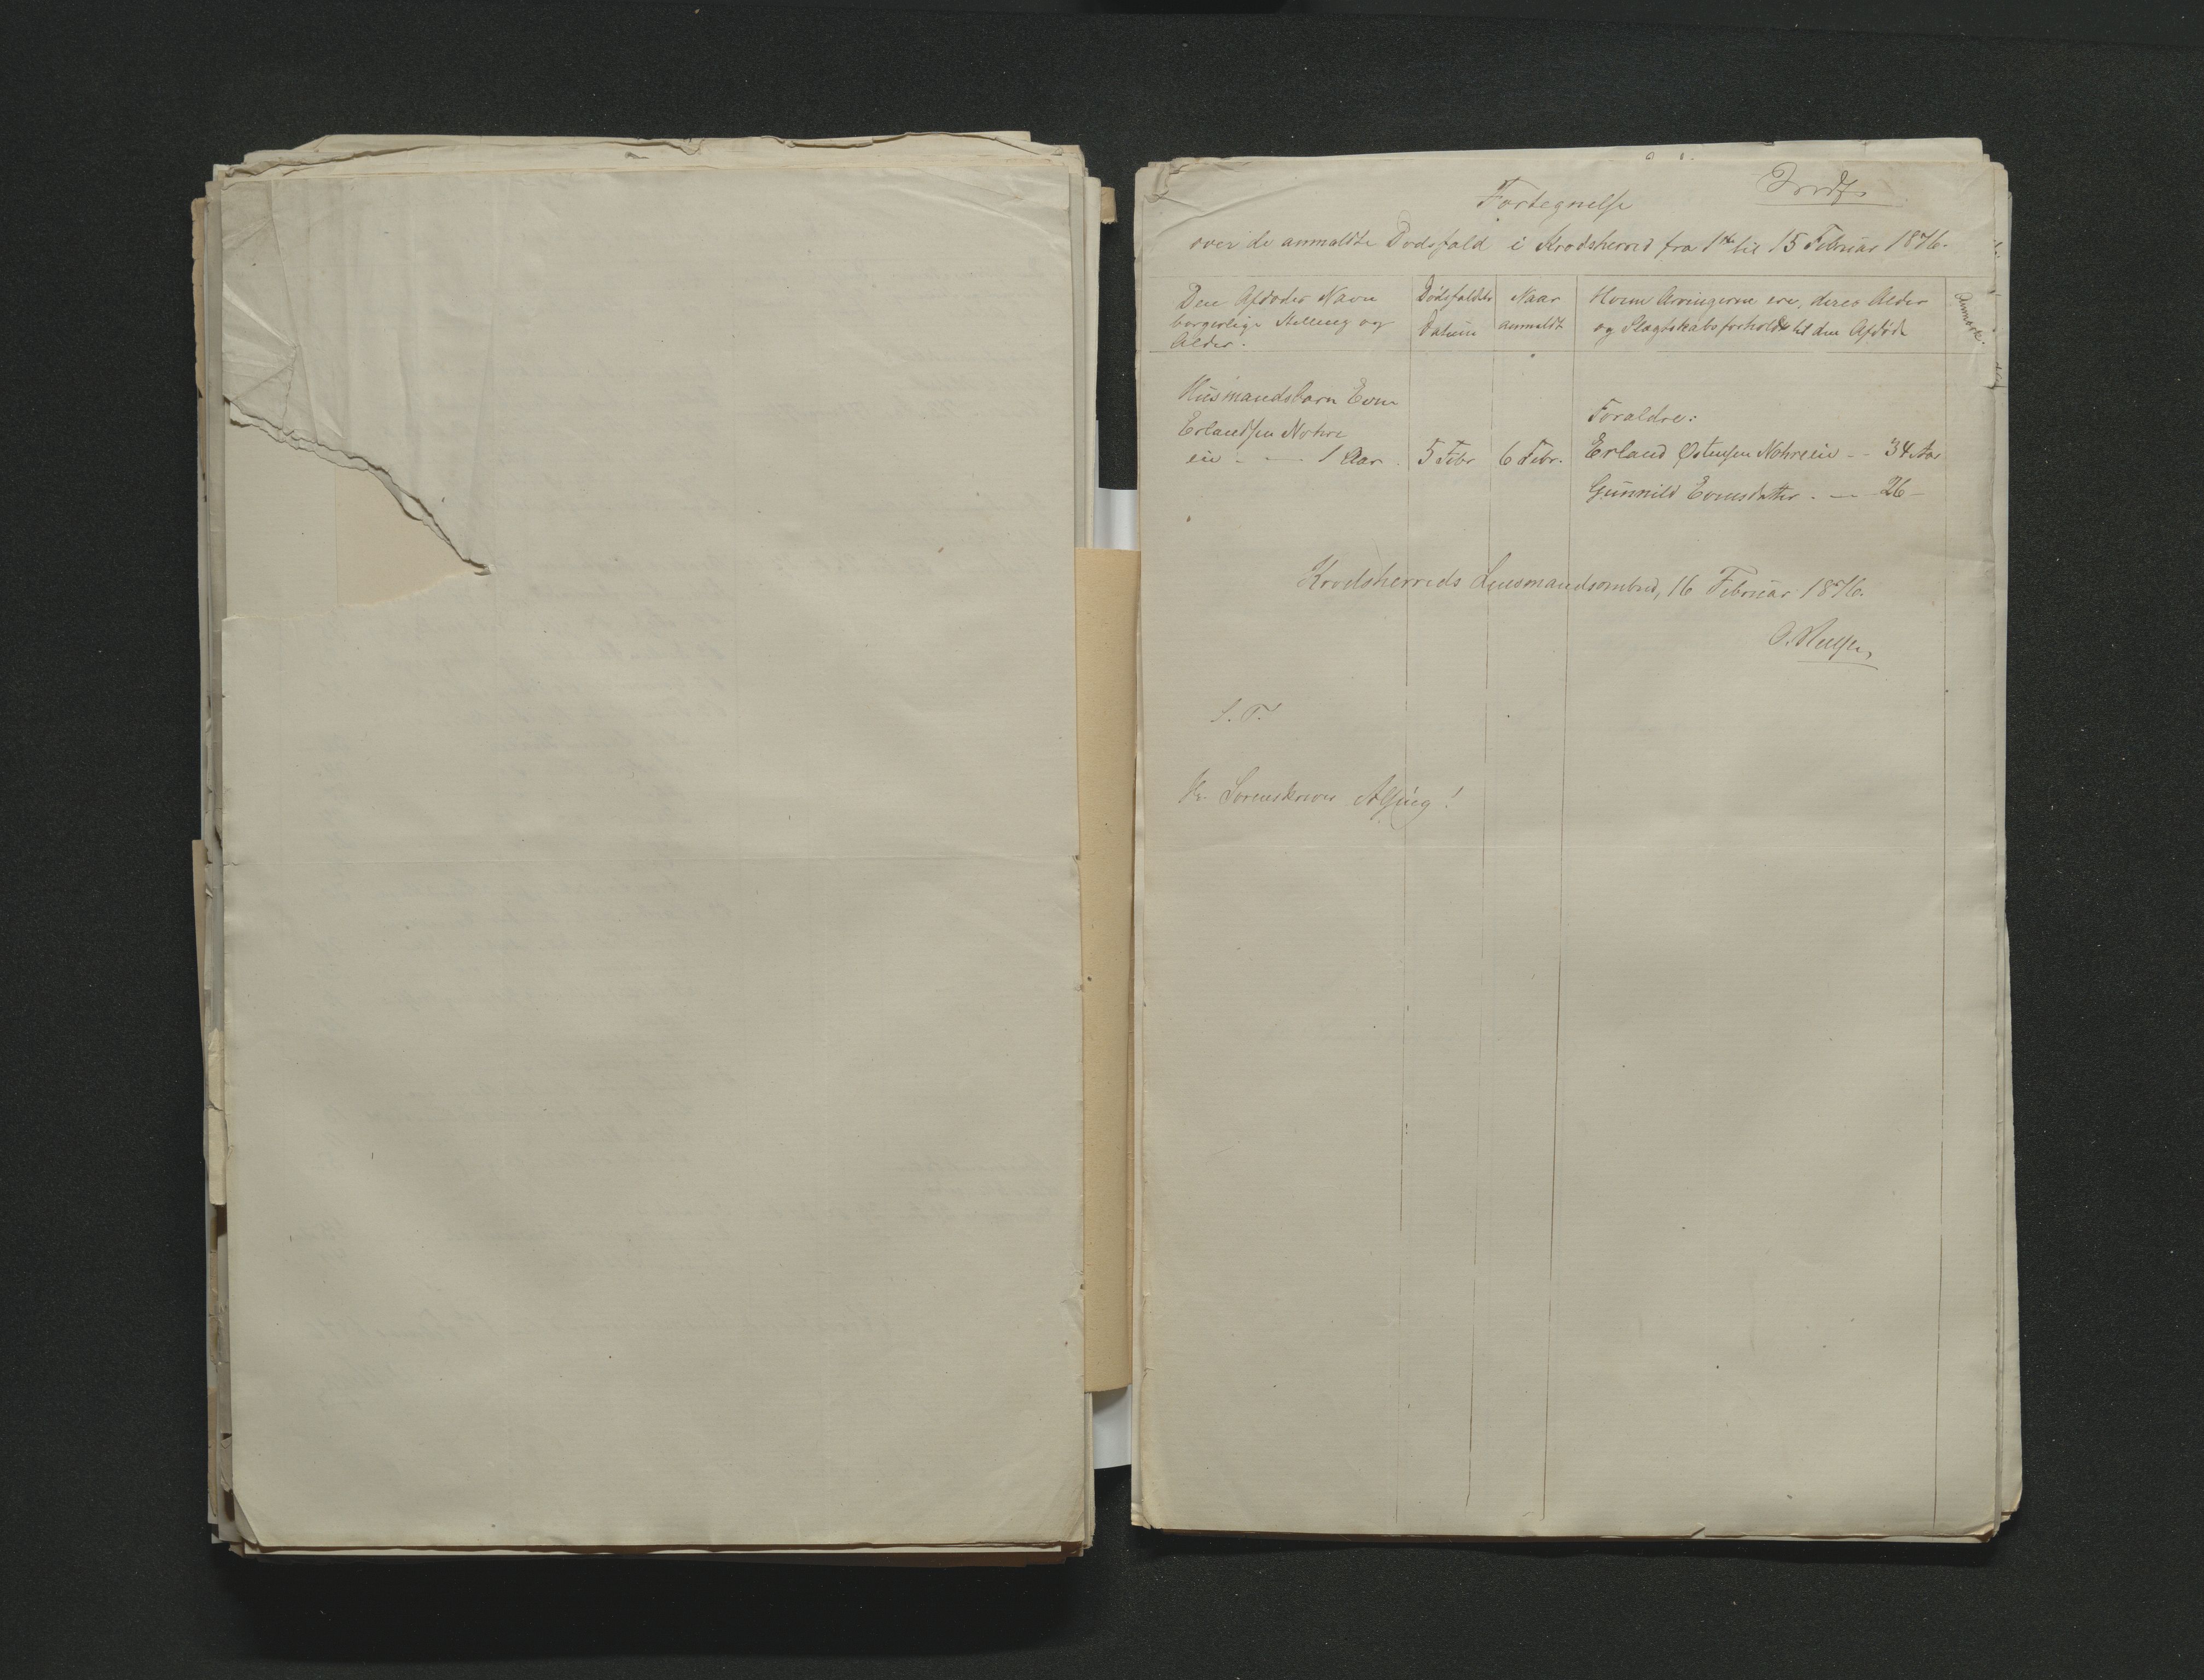 Fortegnelse
over de anmeldte Dødsfald i Krødsherred fra 1ste til 15 Februar 1876.
Den Afdødes Navn
borgerlige Stilling og
Alder.
Dødsfaldets
Datum
Naar
anmeldt
Hvem Arvingerne ere, deres Alder
og Slægtskabsforhold til den Afdøde
Anmærk.
Husmandsbarn Even
Erlandsen Nohre
eie - — 1 Aar.
5 Febr
6 Febr.
Forældre:
Erland Østensen Nohreeie -- 34 Aar
Gunnild Evensdatter. — 26 –
Krødsherreds Lensmandsombud, 16 Februar 1876.
S. T.
Hr. Sorenskriver Alsing!